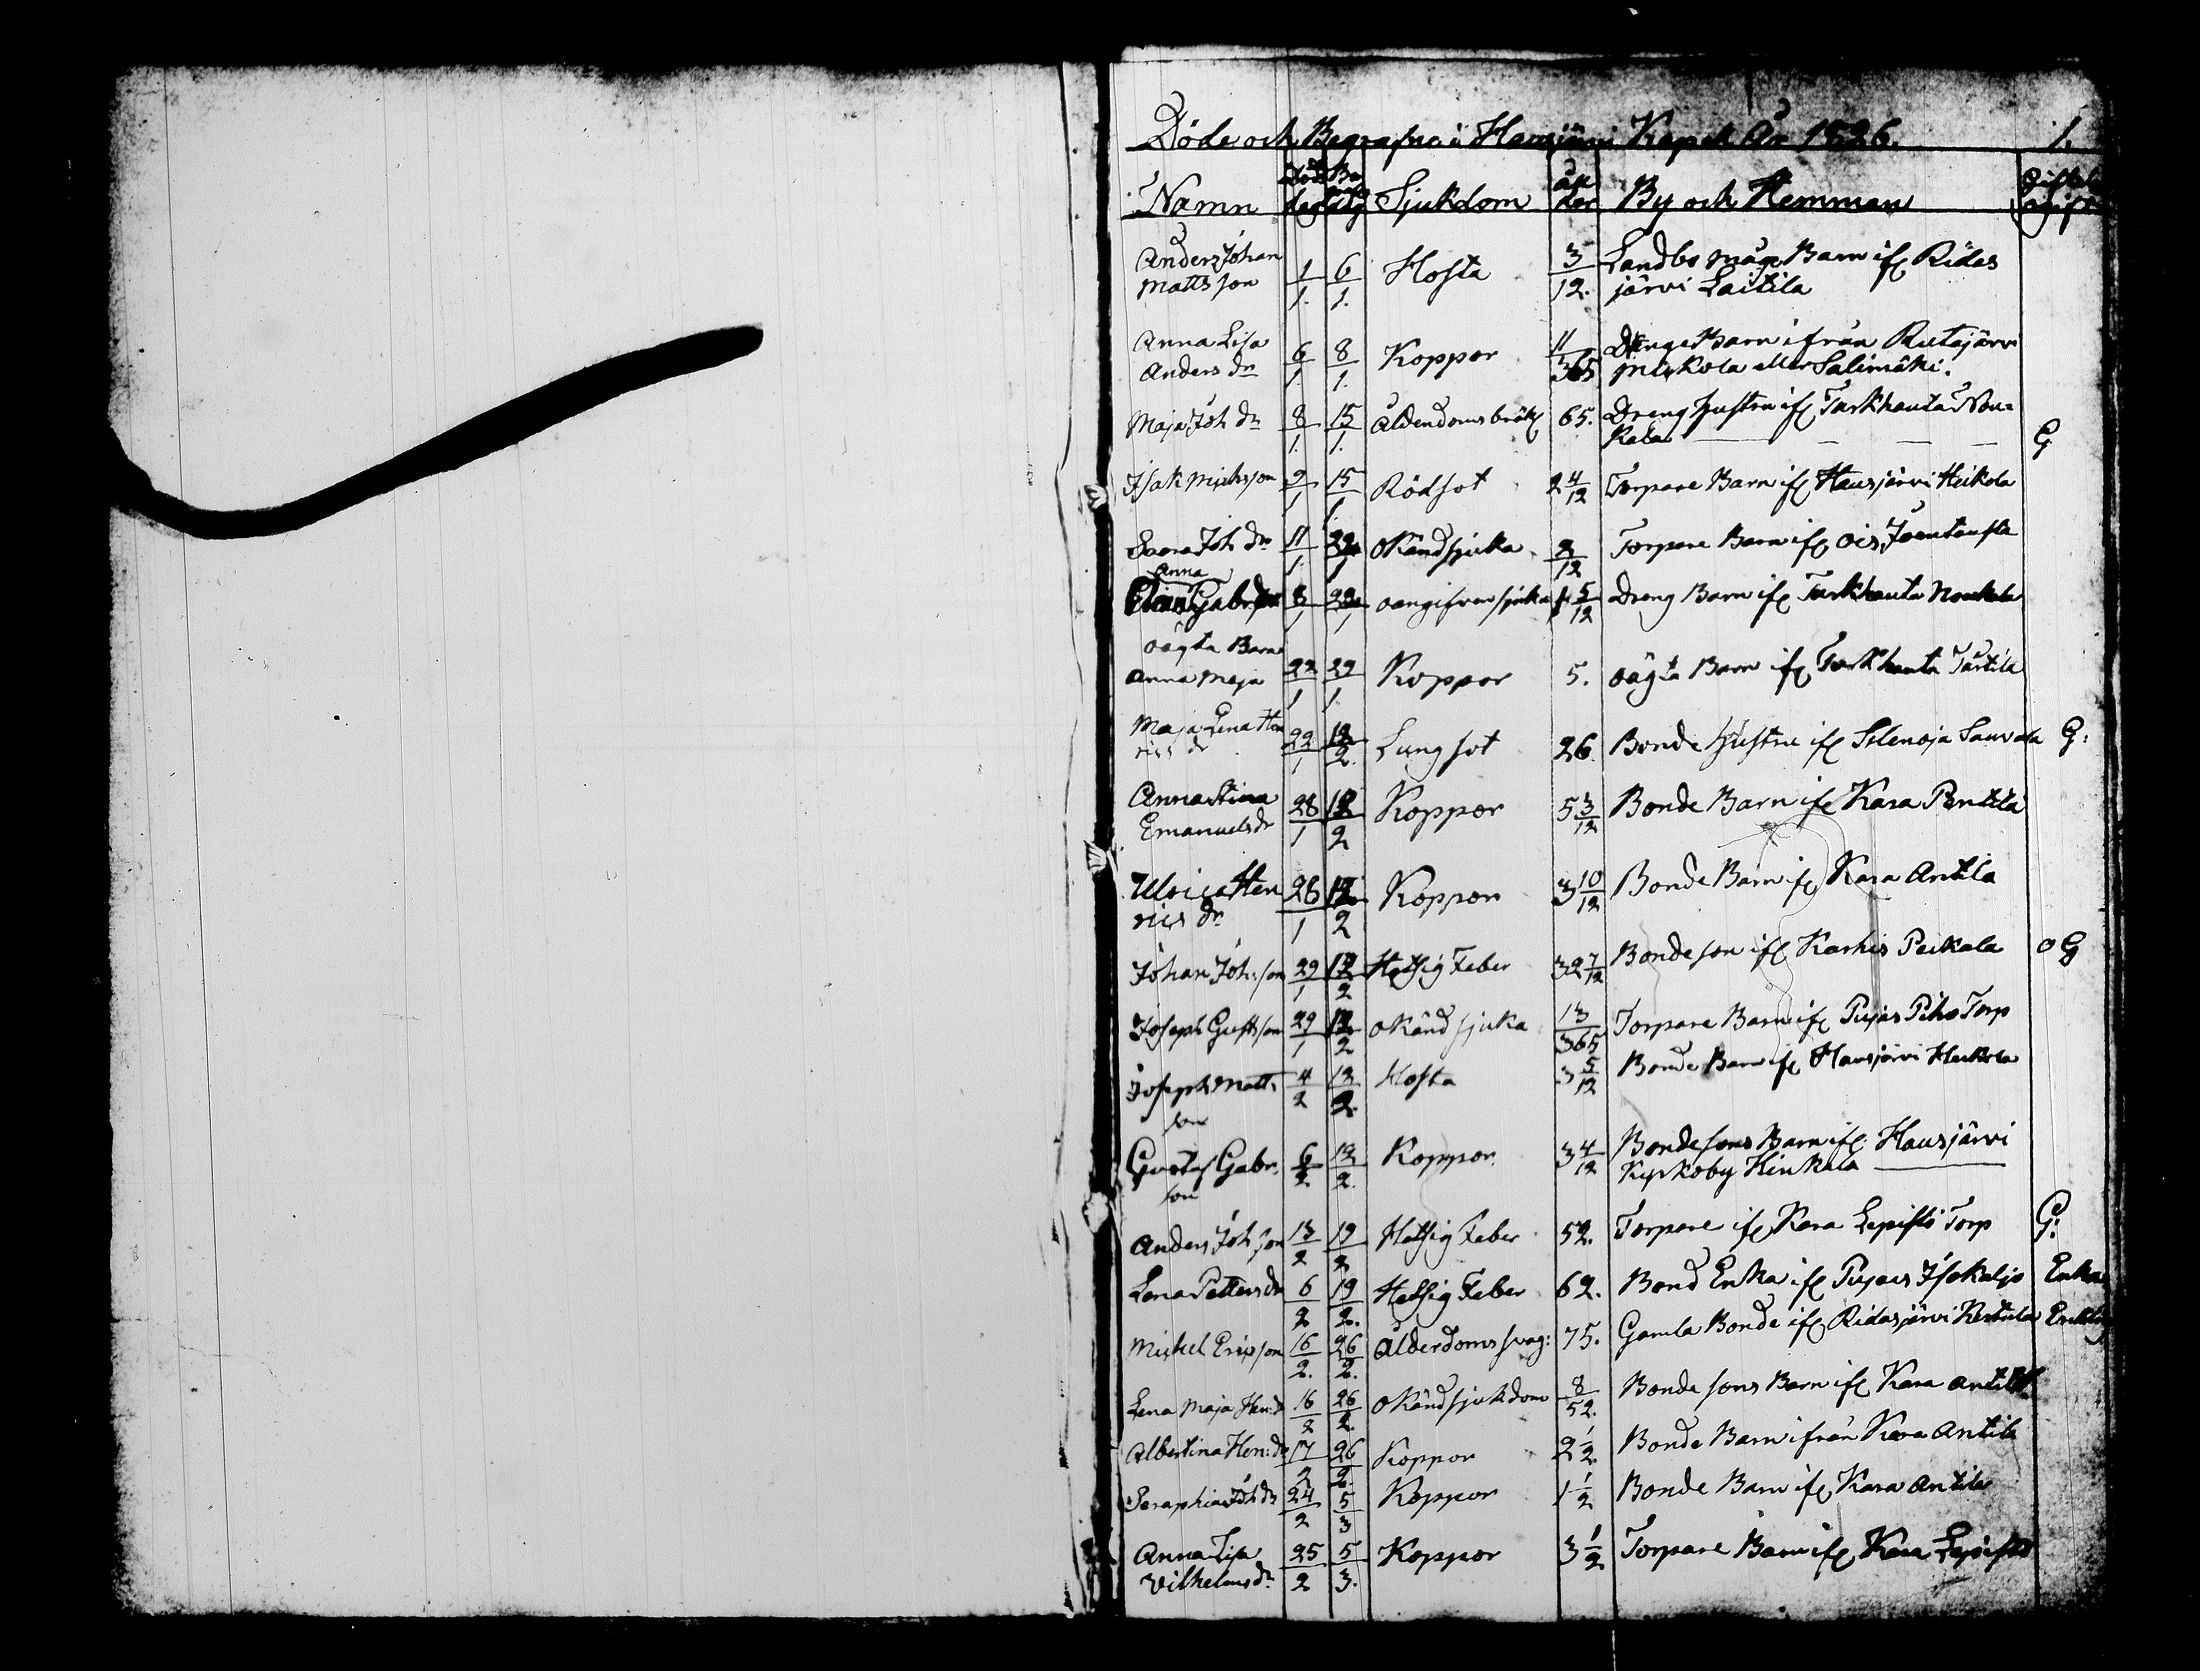 Döde och Begrafne i Hausjärvi Kapell År 1826. 1.
Namn Död dag Begr dag Sjukdom Ål der By och Hemman Gift el ogift
Anders Johan
Mattsson 1/1. 6/1. Hosta 3/12. Landbo mågs Barn if Ridas
järvi Laitila
Anna Lisa
Anders dr 6/1. 8/1. Koppor 11/365 Drenge Barn ifrån Rutajärvi
eller Salimäki.
Maja Joh dr 8/1. 15/1. Ålderdoms bräk 65. Dreng hustru if Turkhauta Nou=
kala G
Isak Michsson 9/1 15/1. Rödsot 2 4/12 Torpare Barn if Hausjärvi Heikola
Joh dr 11/1. 22/1 okänd sjuka 2/12 Torpare Barn if Ois
Anna
Gabr 8/1 22/1 oangifven sjuka 5/12 Dreng Barn if Turkhauta Noukala
oägta Barn
Anna Maja 22/1 29/1. Koppor 5. oägta Barn if Turkhauta
Maja Lena Hen
rics dr 22/1 12/2. Lungsot 26. Bonde hustru if Selenoja Sauvala G:
Anna Stina
Emanuels dr 28/1 12/2 Koppor 5 3/12 Bonde Barn if Kara Pentilä
Ulrica Hen
rics dr 28/1 12/2 Koppor 3 10/12 Bonde Barn if Kara Antila
Johan Joh:son 29/1 12/2 Hetsig Feber 32 7/12 Bondeson if Karhis Peikala o G
Joseph Gustsson 29/1 12/2 okänd sjuka 13/365 Torpare Barn if Pujas Piho Torp
Joseph Matts
son 4/2 12/2. Hosta 3 5/12 Bonde Barn if Hausjärvi Heikola
Gustaf Gabr.
son 6/2 12/2. Koppor 3 4/12 Bondesons Barn if Hausjärvi
Kyrkoby Hinkala
Anders Joh son 13/2 19/2 Hetsig Feber 52. Torpare if Kara Lepistö Torp G:
Lena Petters dr 6/2 19/2. Hetsig Feber 62. Bond Enka if Pujas Enka
Michel Ericsson 16/2. 26/2. Ålderdoms svag: 75. Gamla Bonde if Ridasjärvi Enkling
Lena Maja Hen:dr 16/2 26/2. okänd sjukdom 8/52. Bonde sons Barn if Kara Antila
Albertina Hen:dr 17/2 26/2. Koppor 2 1/2. Bonde Barn ifrån Kara Antila
Seraphia Joh dr 24/2 5/3 Koppor 1 1/2 Bonde Barn if Kara Antila
Anna Lisa
Vilhelms dr 25/2 5/3. Koppor 3 1/2 Torpare Barn if Kara Lepistö